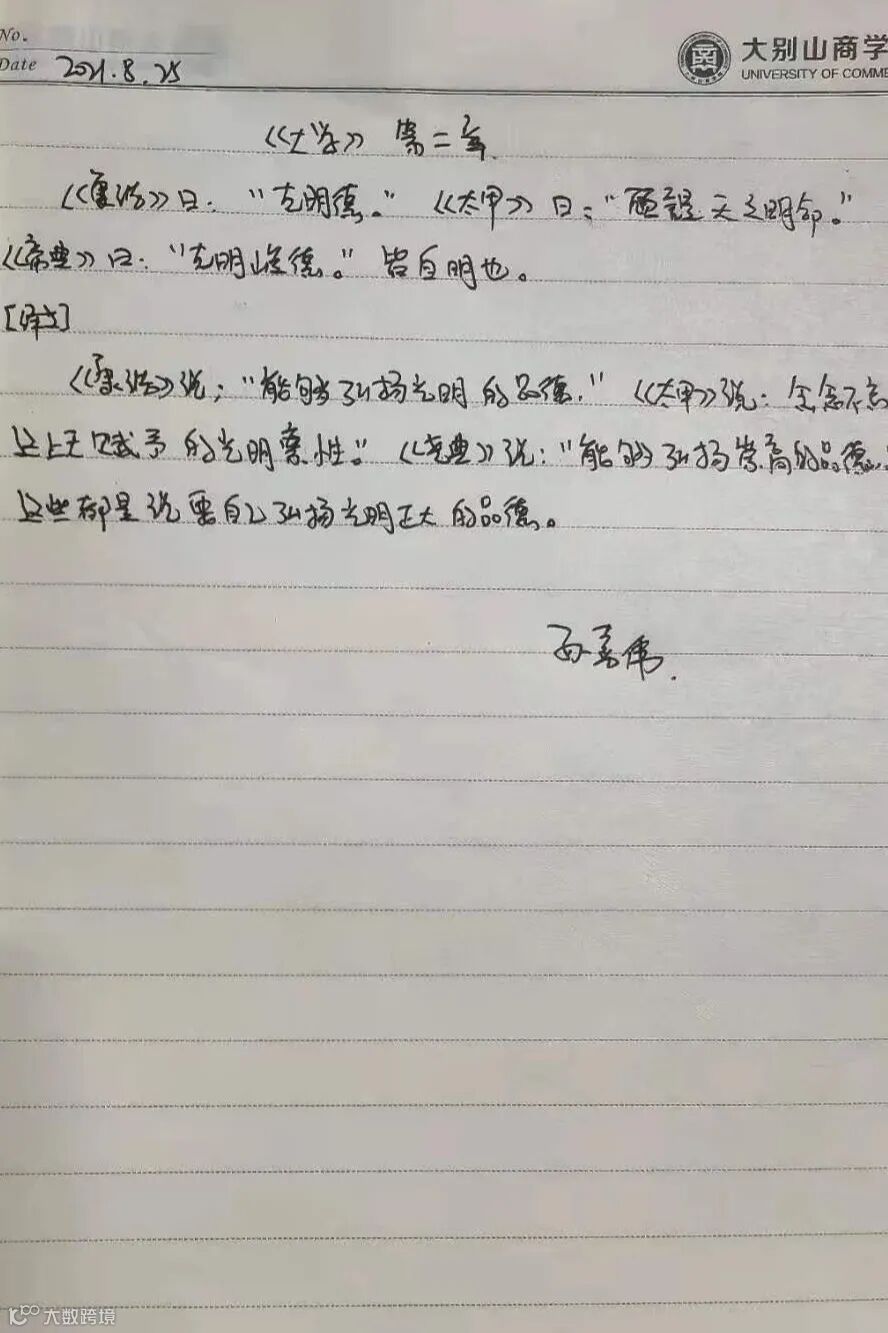 No.
Date 2021.8.25
大别山商学
UNIVERSITY OF COMME
《大学》第二章
《康诰》曰:“克明德。”《太甲》曰:“顾諟天之明命。”
《帝典》曰:“克明峻德。”皆自明也。
[译文]
《康诰》说:“能够弘扬光明的品德.”《太甲》说:念念不忘
这上天赋予的光明禀性。”《尧典》说:“能够弘扬崇高的品德。
这些都是说要自己弘扬光明正大的品德。
孙嘉伟.
大数跨境